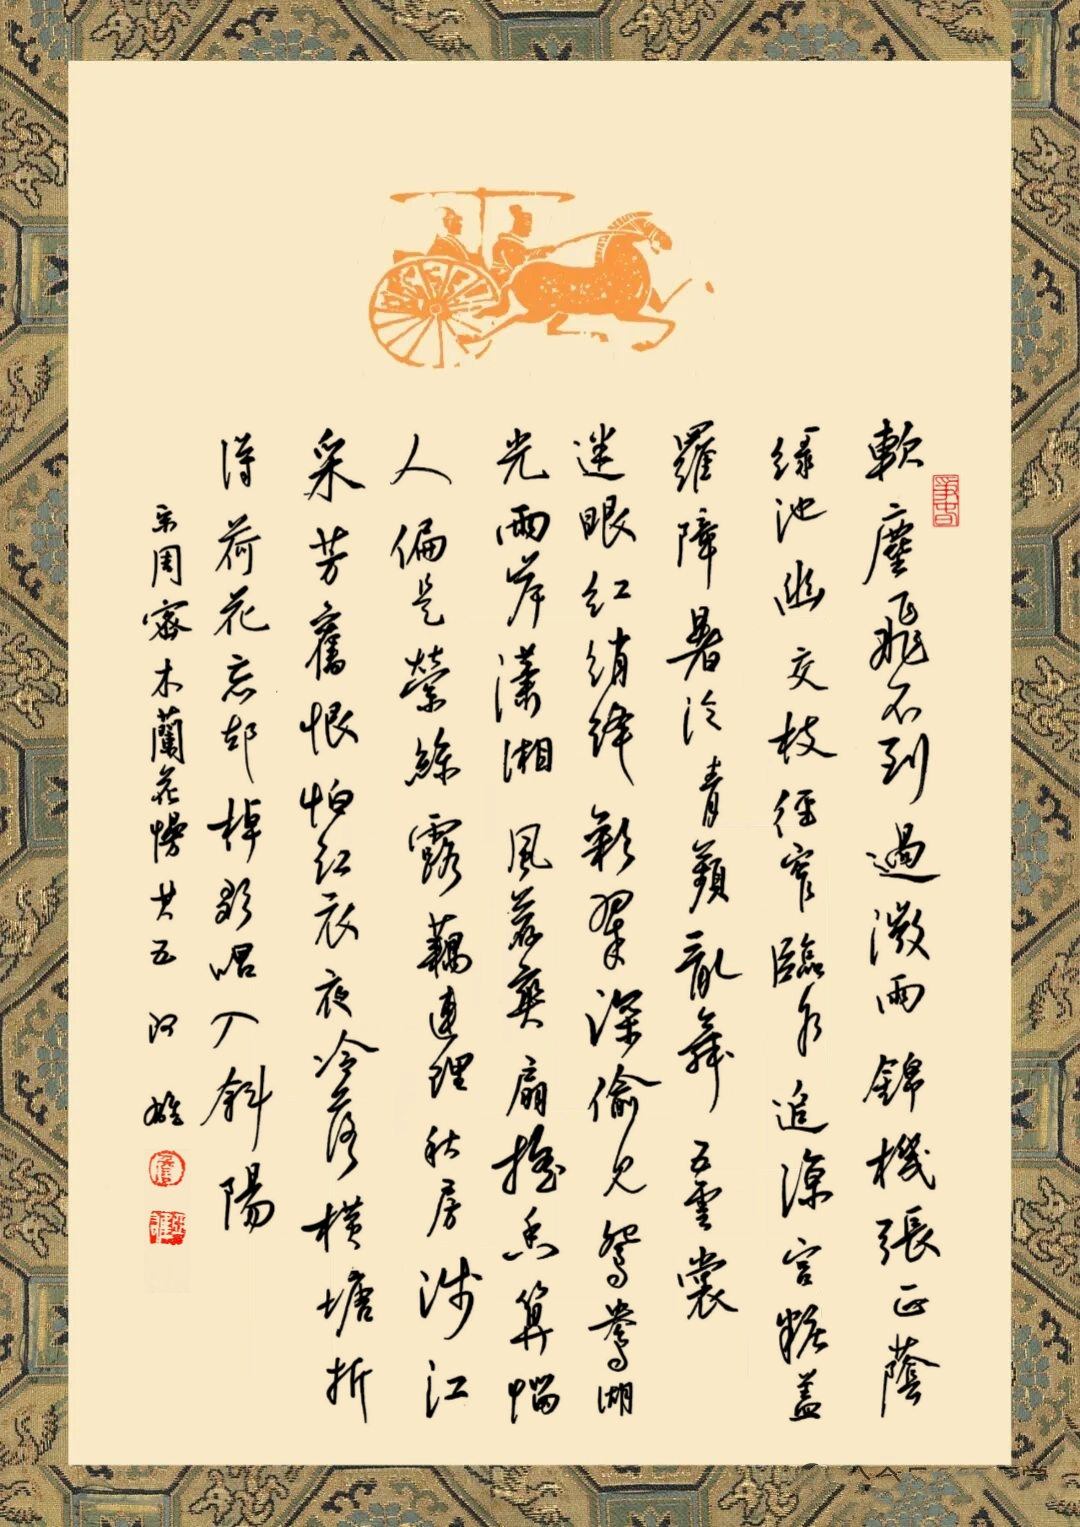 軟塵飛不到過微雨錦機張正蔭
綠池幽交枝徑窄臨水追涼宮糚蓋
羅障暑泠青蘋亂舞五雲裳
迷眼紅綃絳彩翠深偷見鴛鴦湖
光兩岸瀟湘風薦爽扇搖香算惱
人偏是縈絲露藕連理秋房涉江
采芳舊恨怕紅衣夜冷落橫塘折
得荷花忘却棹歌唱入斜陽
宋周密木蘭花慢共五